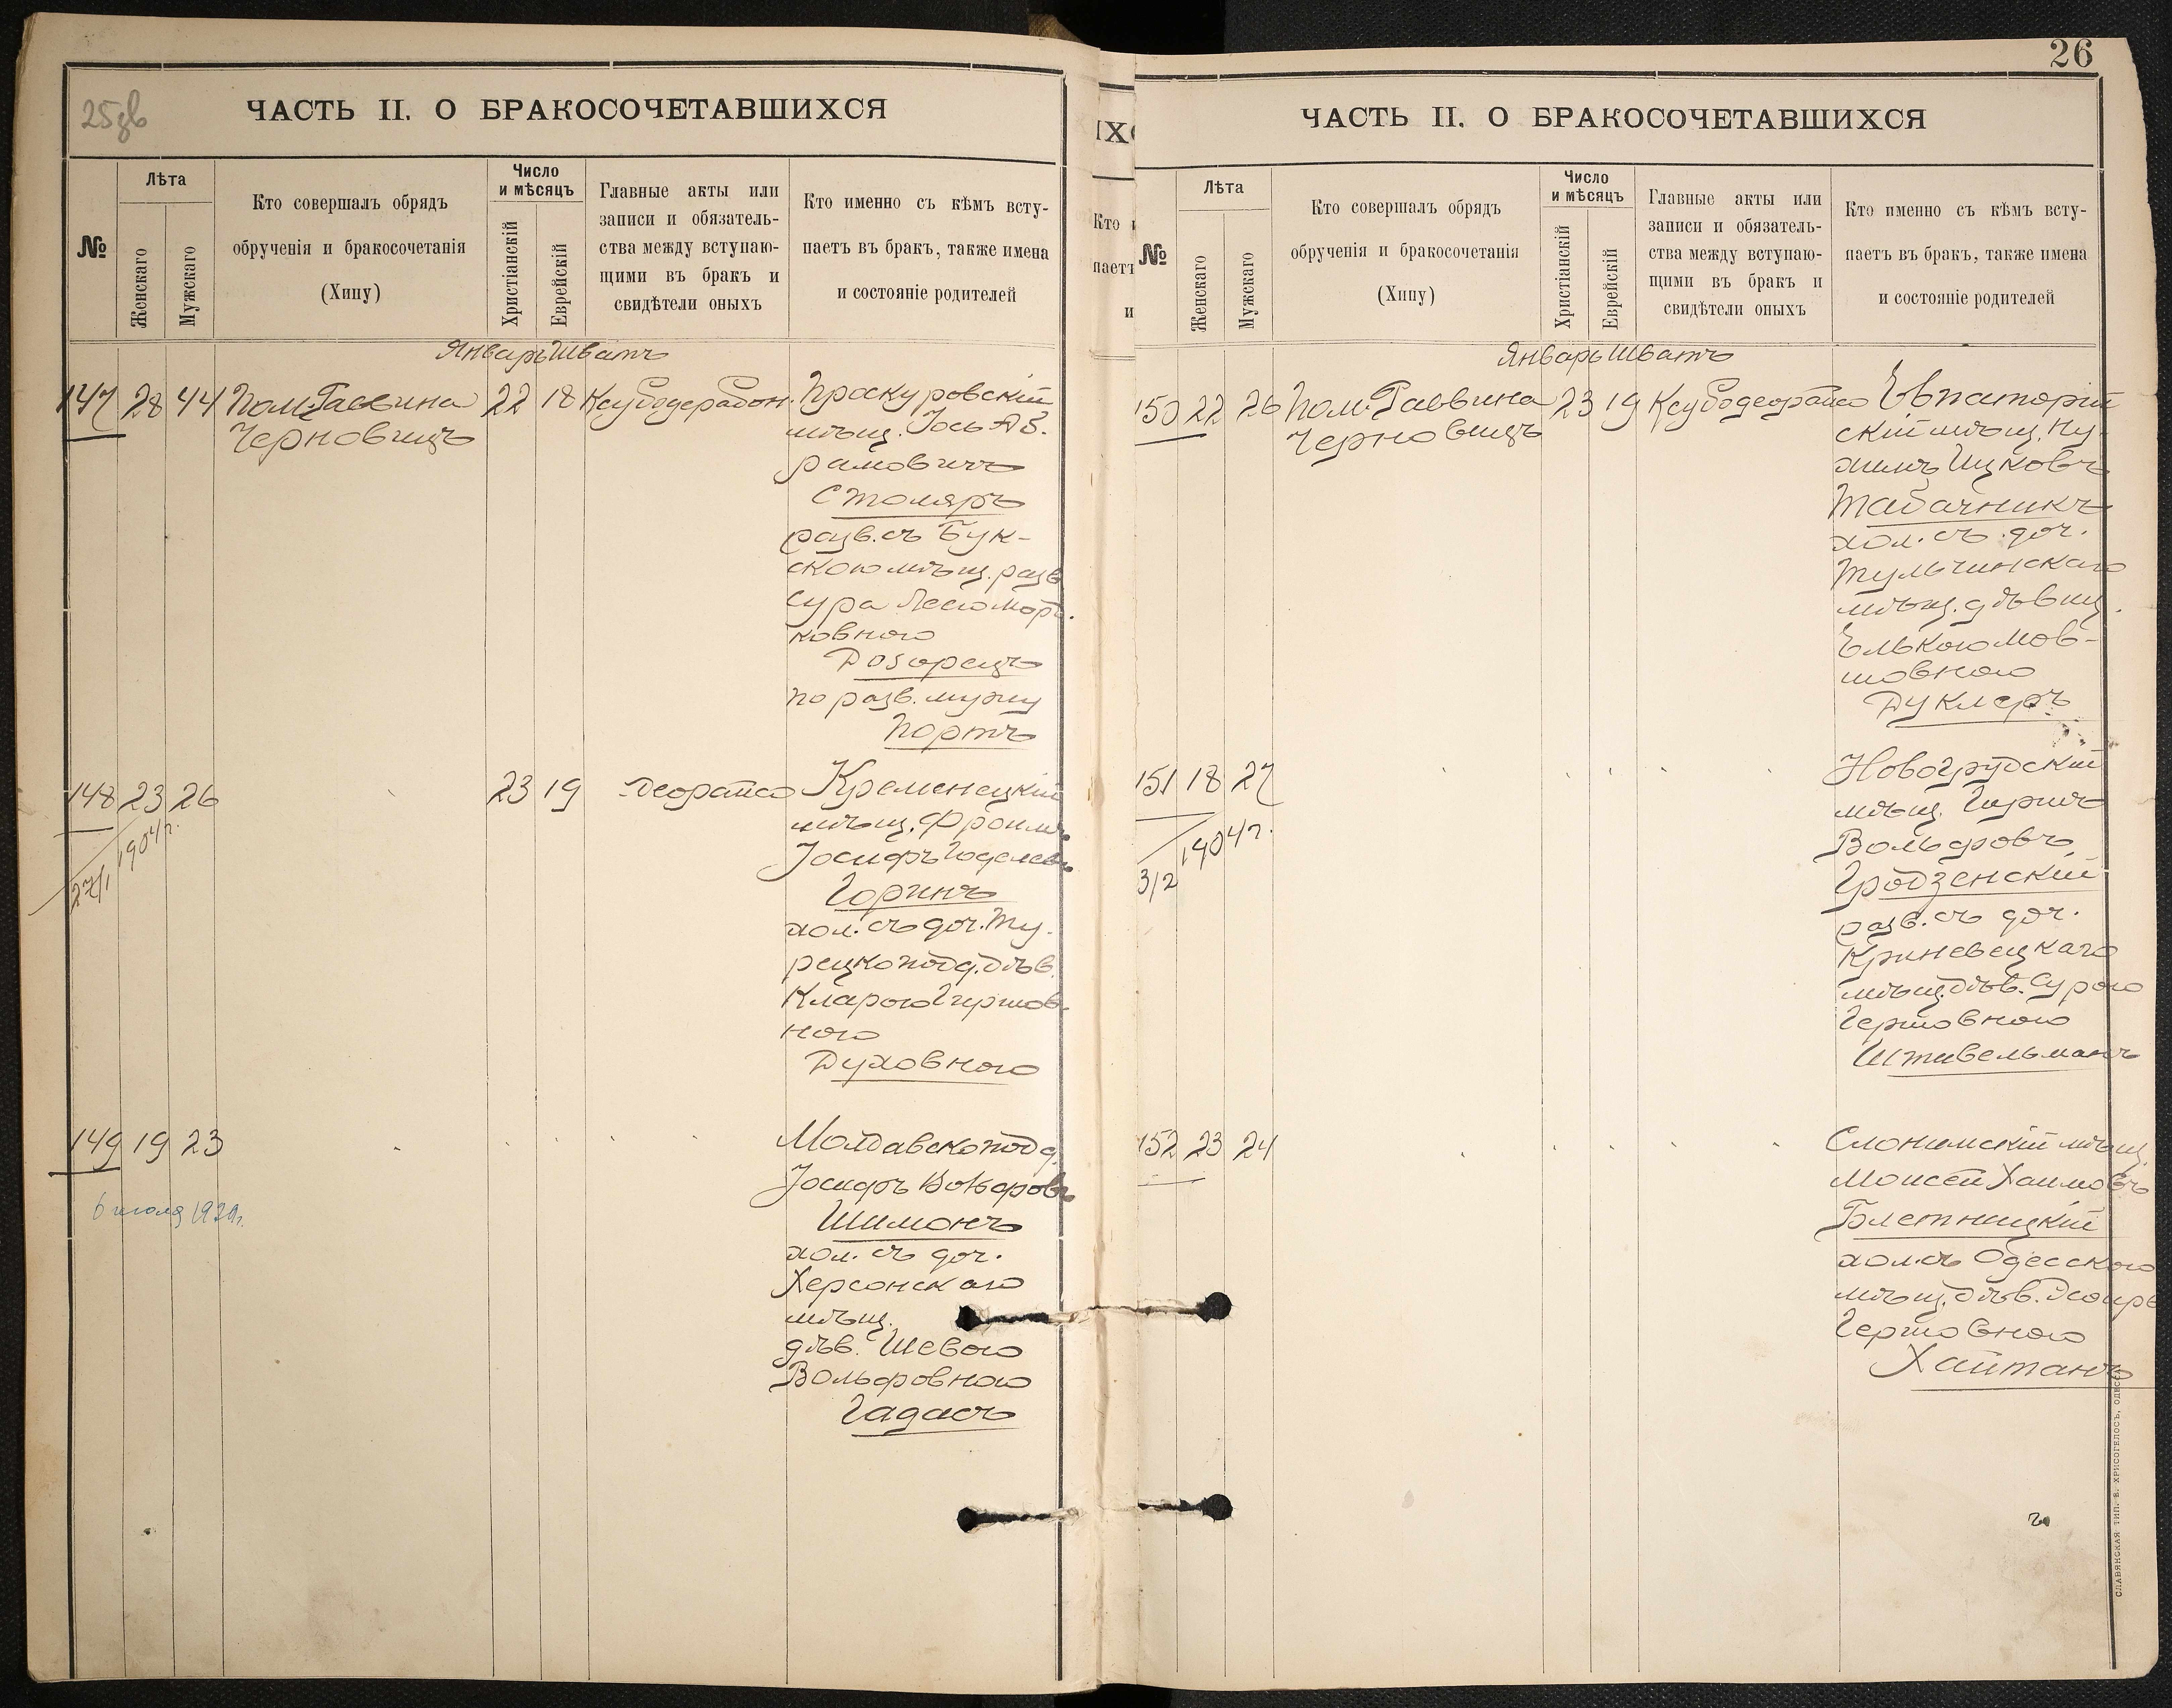 25зв
ЧАСТЬ II. О БРАКОСОЧЕТАВШИХСЯ
№
Лѣта
Женскаго
Мужскаго
Кто совершалъ обрядъ
обрученія и бракосочетанія
(Хипу)
Число
и мѣсяцъ
Христіанскій
Еврейскій
Главные акты или
записи и обязатель-
ства между вступаю-
щими въ бракъ и
свидѣтели оныхъ
Кто именно съ кѣмъ всту-
паетъ въ бракъ, также имена
и состояніе родителей
Январь Шватъ
147 28 44 Пом. Раввина 22 18 Проскуровскій
Черновицъ
мѣщ. Іось Аб-
рамовичъ
Столяръ
разв. съ Бук-
скою мѣщ. разв
Сура Лею Морд.
ковною
Дозорецъ
по разв. мужу
Портъ
148 23 26 23 19 Деорайсо Кременецкій
1904 г.
27/1
мѣщ. Фроимъ
Іосифъ Годелевъ
Горинъ
хол. съ доч. Ту-
рецкопод. дѣв.
Кларою Гершов-
ною
Духовною
149 19 23 Молдавскопод.
Іосифъ Вольфовъ
6 июля 1929г.
Шимонъ
хол. съ доч.
Херсонскаго
мѣщ.
дѣв. Шевою
Вольфовною
Гадасъ
26
ЧАСТЬ II. О БРАКОСОЧЕТАВШИХСЯ
№
Лѣта
Женскаго
Мужскаго
Кто совершалъ обрядъ
обрученія и бракосочетанія
(Хипу)
Число
и мѣсяцъ
Христіанскій
Еврейскій
Главные акты или
записи и обязатель-
ства между вступаю-
щими въ бракъ и
свидѣтели оныхъ
Кто именно съ кѣмъ всту-
паетъ въ бракъ, также имена
и состояніе родителей
Январь Шватъ
150 22 26 Пом. Раввина 23 19 Ксубодеорайсо Евпаторій
Черновицъ
скій мѣщ. Ну-
химъ Ицковъ
Табачникъ
хол. съ доч.
Тульчинскаго
мѣщ. дѣвиц.
Елькою Мов-
шовною
Дуклеръ
151 18 27 Новогрудскій
1904 г.
3/2
мѣщ. Гиршъ
Вольфовъ
Гродзенскій
разв. съ доч.
Криневецкаго
мѣщ. дѣв. Сурою
Гершовною
Штивельманъ
152 23 24 Слонимскій мѣщ.
Моисей Хаимовъ
Блетницкій
хол. съ Одесскою
мѣщ. дѣв.
Гершовною
Хайтанъ
СЛАВЯНСКАЯ ТИП. Е. ХРИСОГЕЛОСЪ, ОДЕССА